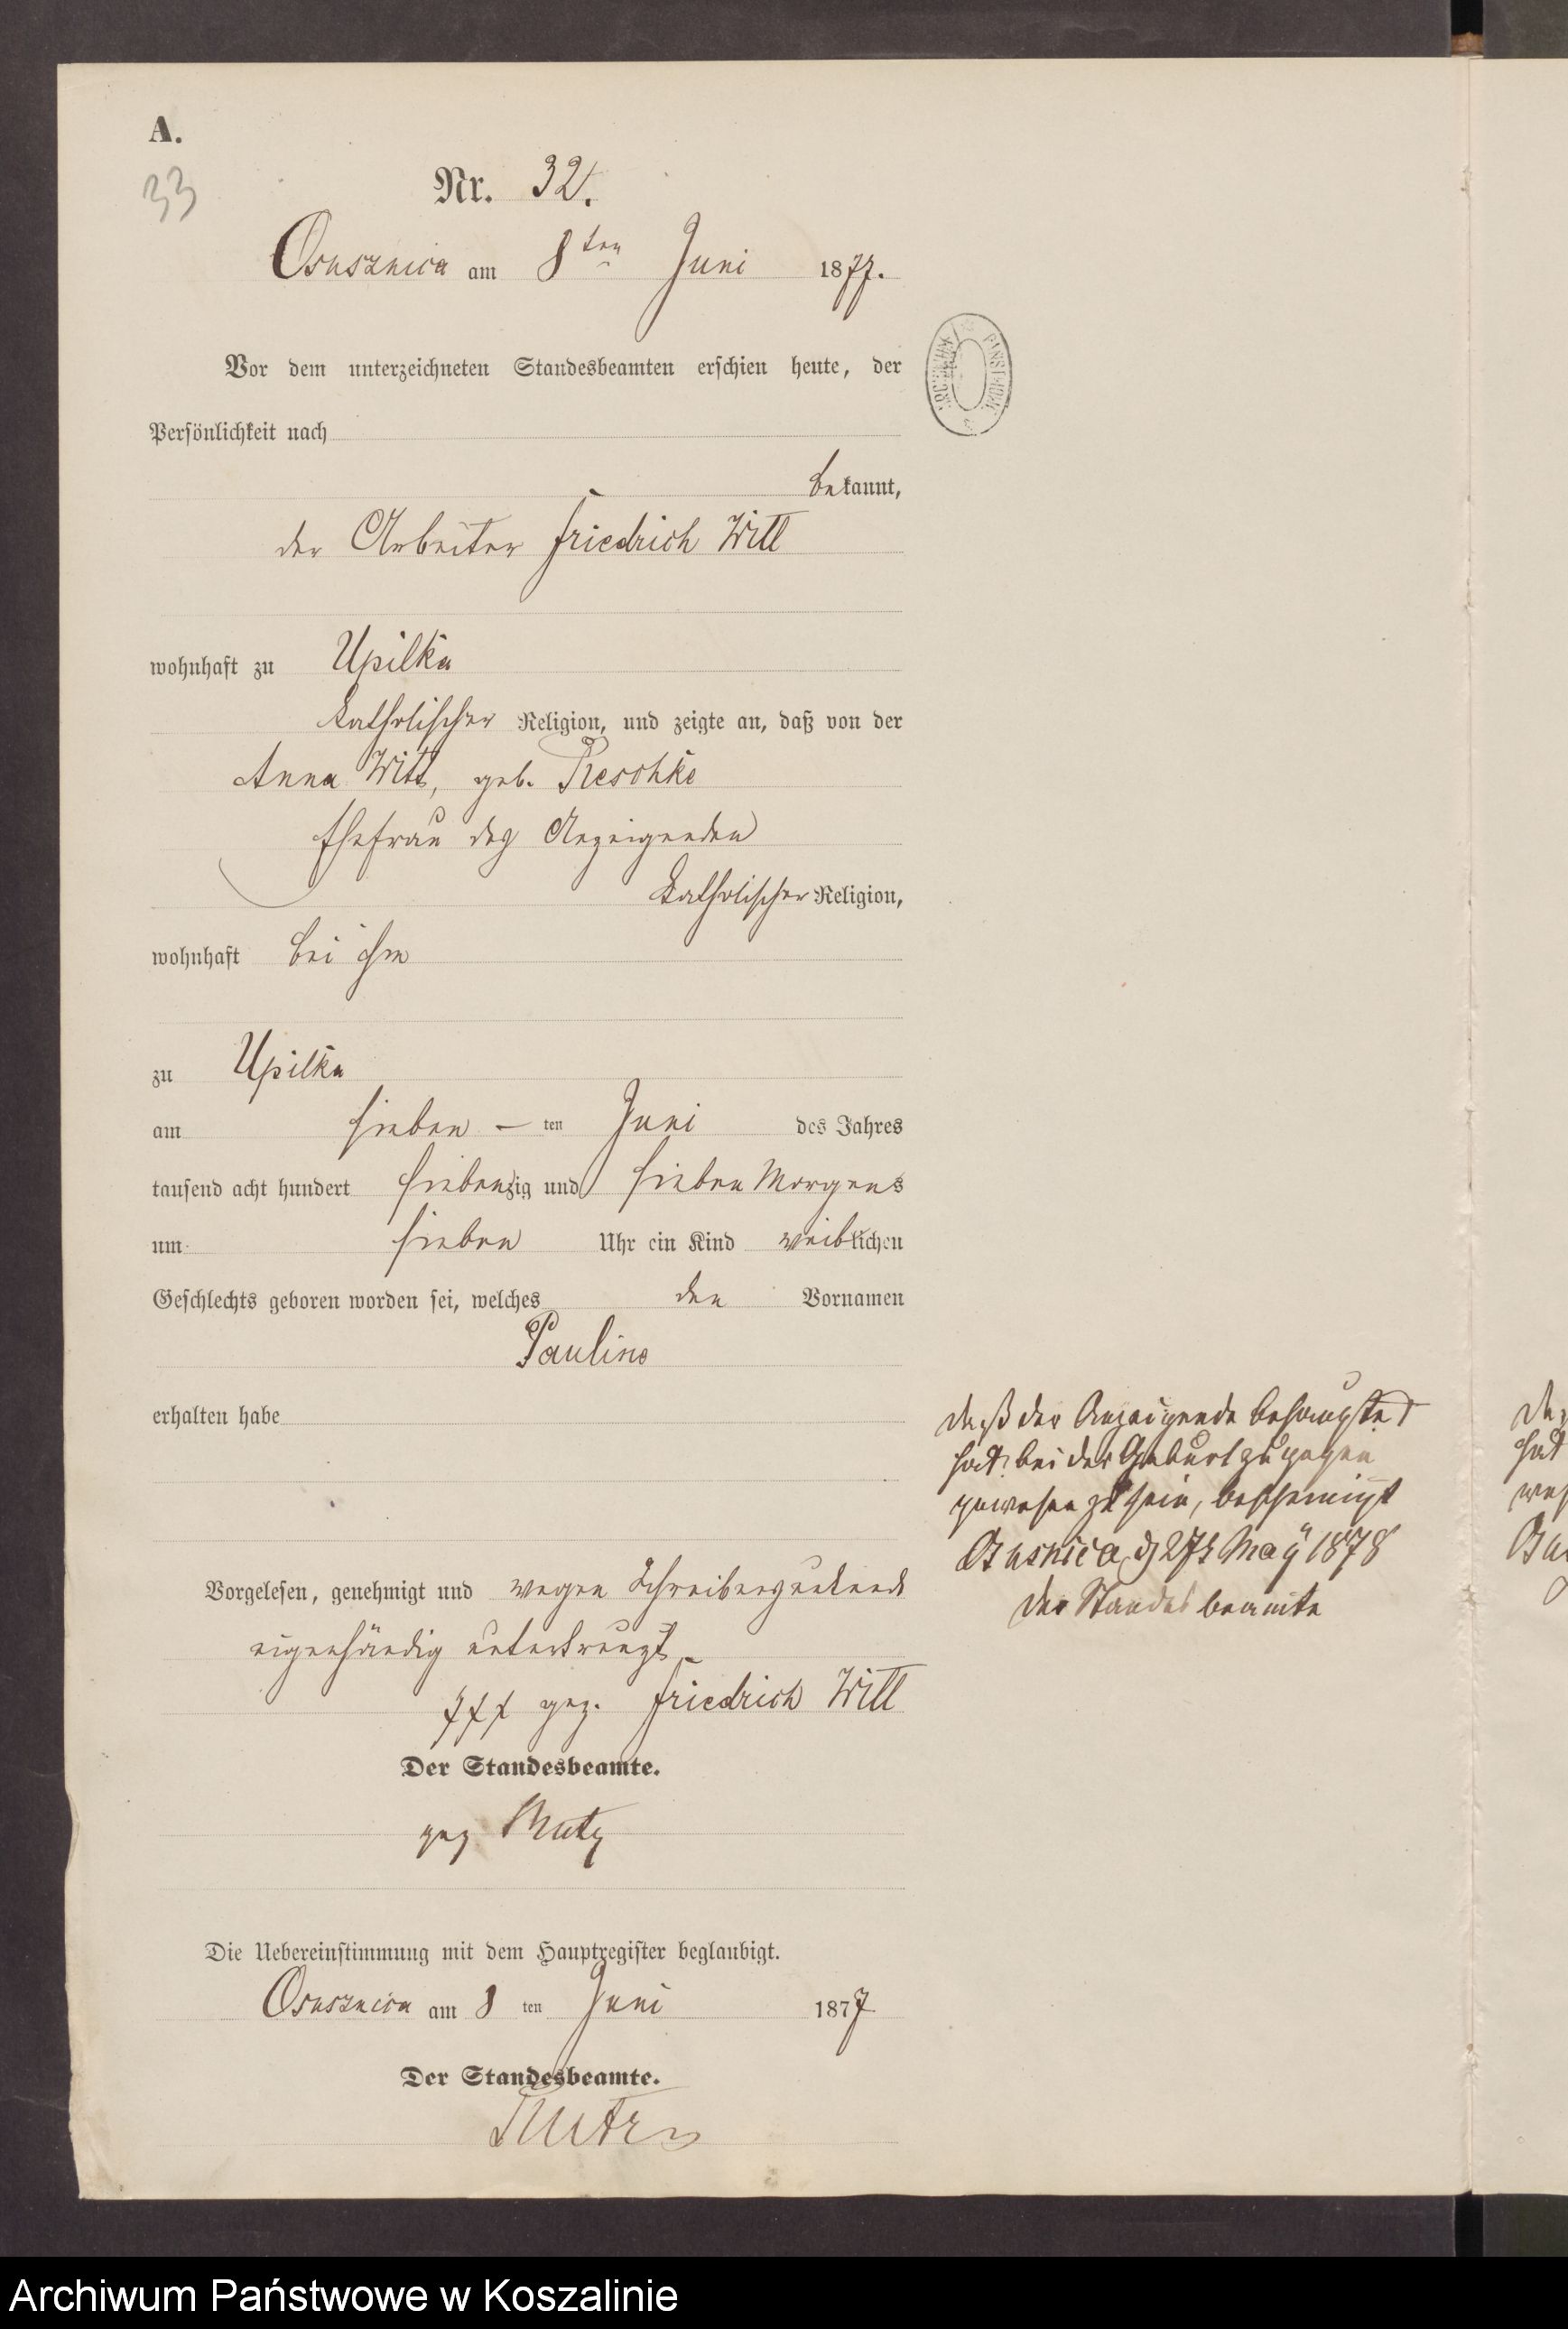 A.
33
Nr. 32.
Ossusznica am 8ten Juni 1877.
Vor dem unterzeichneten Standesbeamten erschien heute, der
Persönlichkeit nach
bekannt,
der Arbeiter Friedrich Witt
wohnhaft zu Upilka
katholischer Religion, und zeigte an, daß von der
Anna Witt, geb. Reschke
Ehefrau des Anzeigenden
katholischer Religion,
wohnhaft bei ihm
zu Upilka
am sieben – ten Juni des Jahres
tausend acht hundert siebenzig und sieben Morgens
um sieben Uhr ein Kind weiblichen
Geschlechts geboren worden sei, welches den Vornamen
Pauline
erhalten habe
Daß der Anzeigende behauptet
hat, bei der Geburt zugegen
gewesen zu sein, bescheinigt
27 May 1878
Der Standesbeamte
Vorgelesen, genehmigt und wegen
eigenhändig unterkreuzt
+++ gez. Friedrich Witt
Der Standesbeamte.
gez
Die Uebereinstimmung mit dem Hauptregister beglaubigt.
Ossusznica am 8 ten Juni 1877
Der Standesbeamte.
Archiwum Państwowe w Koszalinie